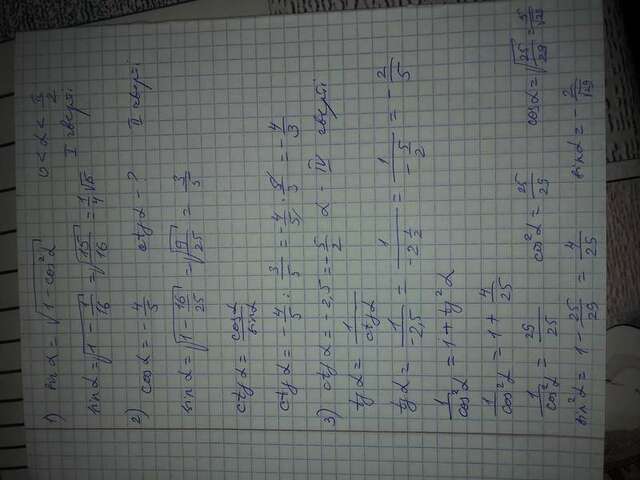 1) sin α = √(1 - cos²α) 0 < α < π/2
I чверті
sin α = √(1 - 1/16) = √(15/16) = 1/4 √15
2) cos α = - 4/5 ctg α - ? II чверті
sin α = √(1 - 16/25) = √(9/25) = 3/5
ctg α = cos α / sin α
ctg α = - 4/5 : 3/5 = - 4/5 · 5/3 = - 4/3
3) ctg α = - 2,5 = - 5/2 α - IV чверті
tg α = 1 / ctg α
tg α = 1/(-2,5) = 1/(-2 1/2) = 1/(- 5/2) = - 2/5
1/cos²α = 1 + tg²α
1/cos²α = 1 + 4/25
1/cos²α = 29/25 cos²α = 25/29 cos α = √(25/29) = 5/√29
sin²α = 1 - 25/29 = 4/25 sin α = - 2/√29